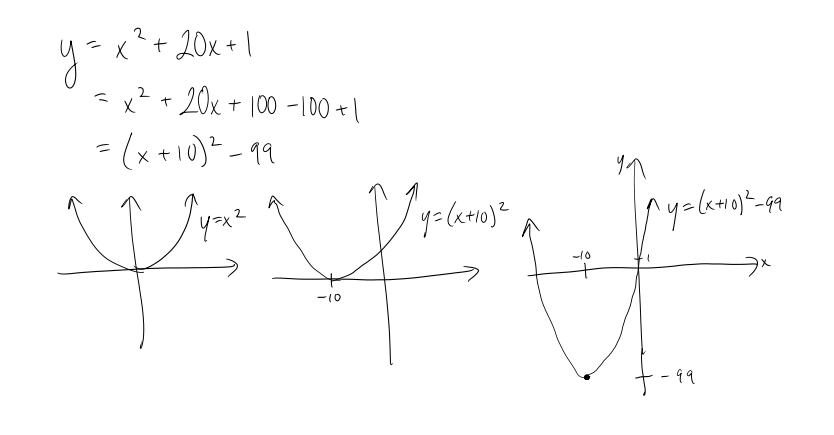 y = x² + 20x + 1
= x² + 20x + 100 - 100 + 1
= (x + 10)² - 99
y = x²
-10
y = (x+10)²
y
y = (x+10)² - 99
-10
1
x
-99